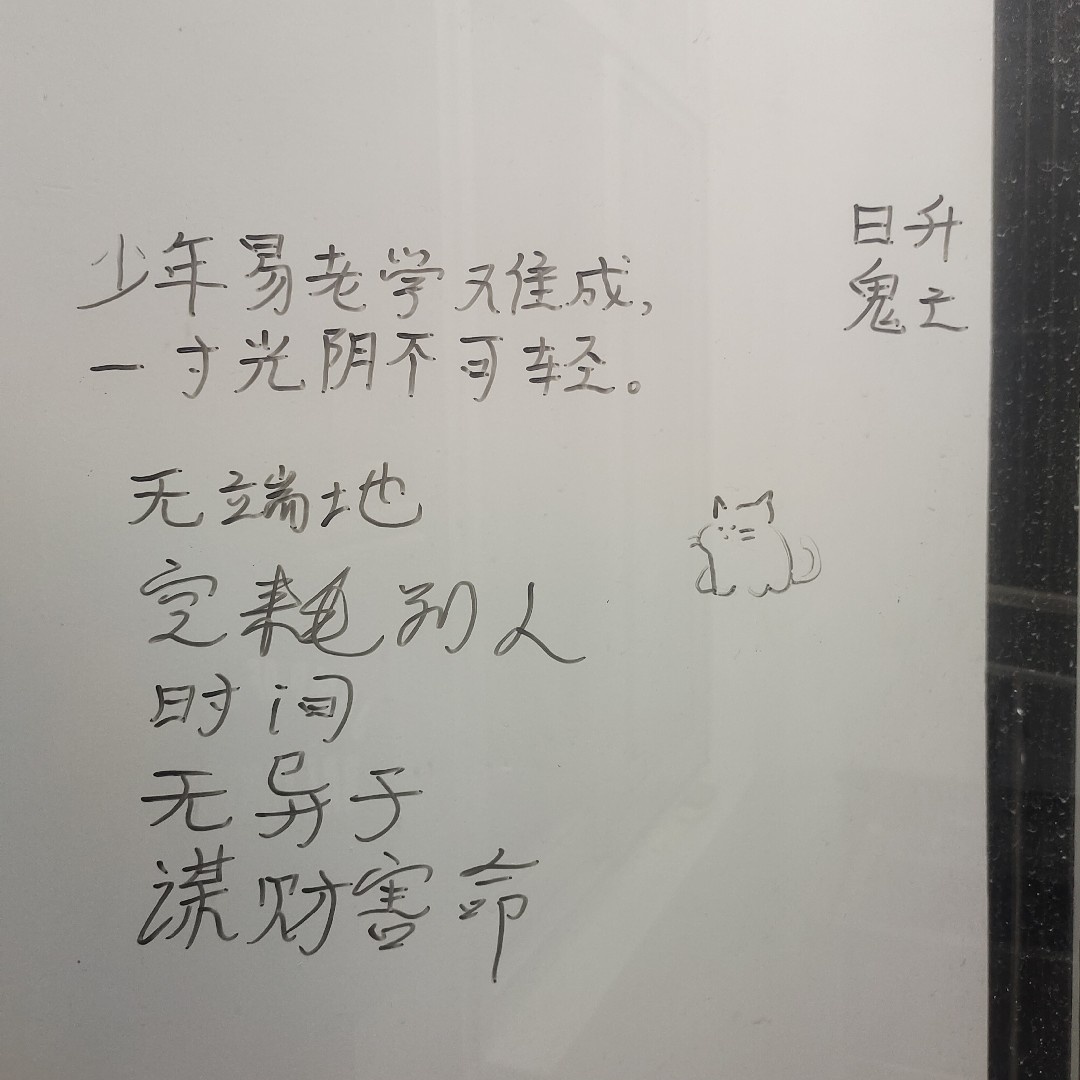 少年易老学难成,
一寸光阴不可轻。
无端地
空耗别人
时间
无异于
谋财害命
日升
鬼亡